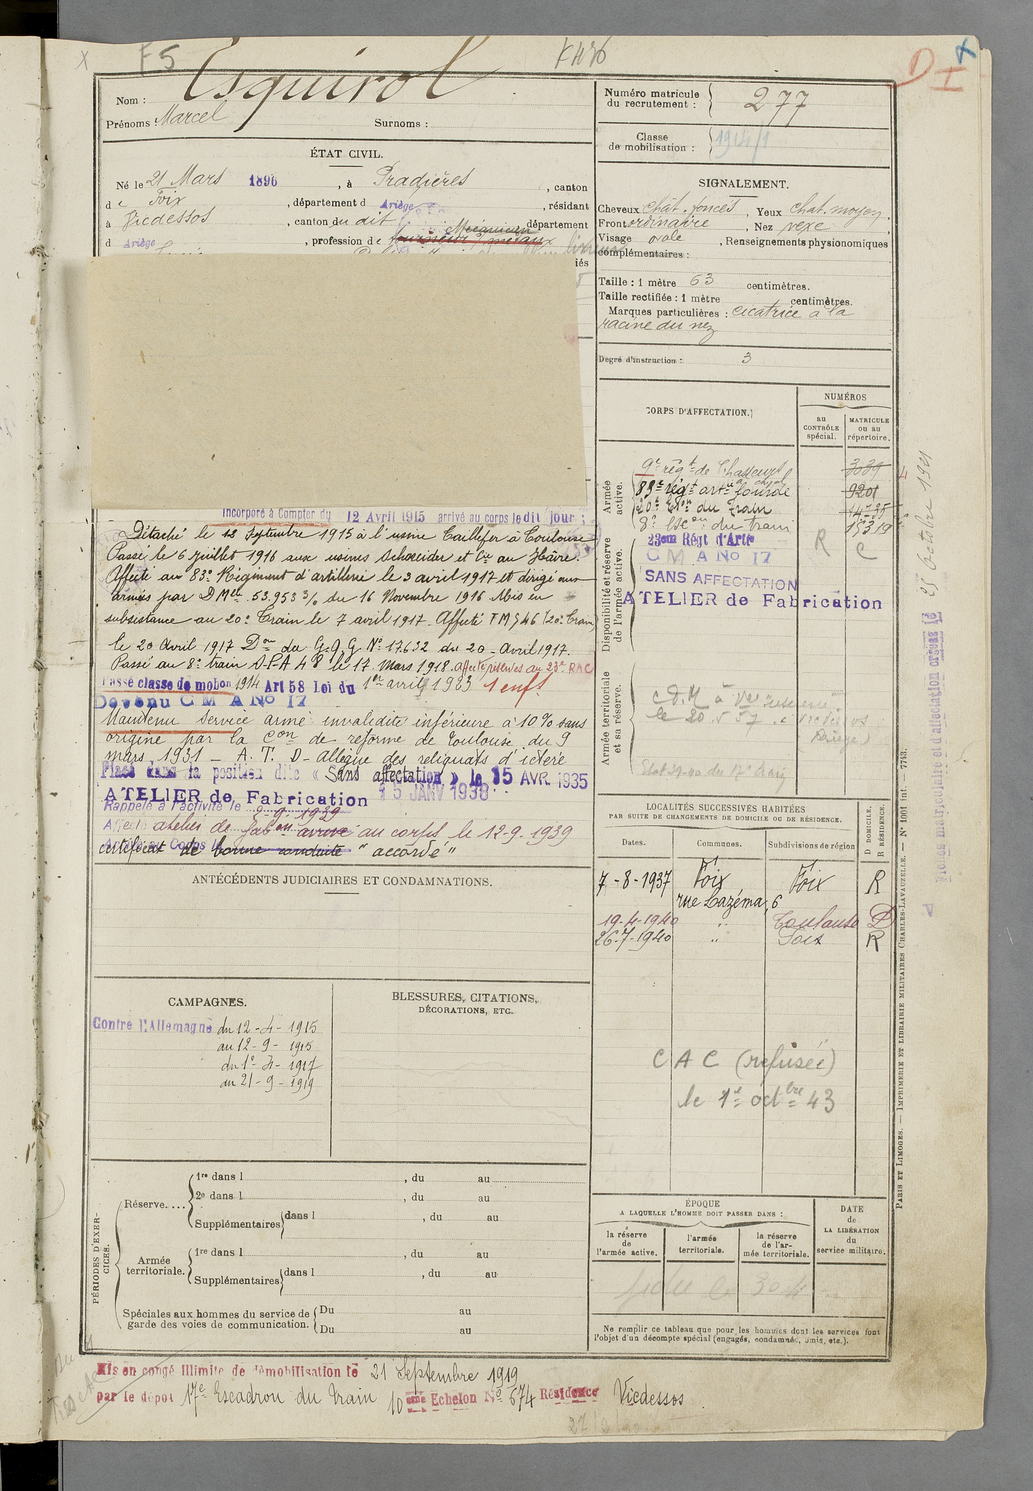 F5
Esquirol
Nom :
Prénoms : Marcel Surnoms :
ÉTAT CIVIL.
Né le 21 Mars 1896, à Pradières, canton
d e Foix, département d Ariège, résidant
à Vicdessos, canton du dit, département
d Ariège, profession de Mécanicien
Incorporé à Compter du 12 Avril 1915 arrivé au corps le dit jour :
Détaché le 12 Septembre 1915 à l'usine Taillefer à Toulouse
Passé le 6 juillet 1916 aux usines Schneider et Cie au Hâvre.
Affecté au 83e Régiment d'artillerie le 3 avril 1917 et dirigé aux
armées par D Mlle 53.953 3/0 du 16 Novembre 1916 Mis en
subsistance au 20e Train le 7 avril 1917. Affecté T M 546 (20e Train)
le 20 Avril 1917 Don du G.Q.G No 17632 du 20 - Avril 1917.
Passé au 8e train D.P.A 4 P le 17 Mars 1918. affecté réserves au 23e RAC
Passé classe de mobon 1914 Art 58 Loi du 1er avril 1923 1 enft
Devenu C M A No 17
Maintenu service armé invalidité inférieure à 10% sans
origine par la Con de reforme de Toulouse du 9
mars 1931 - A. T. D - Allègue des reliquats d'ictère
Placé dans la position dite « Sans affectation » le 15 AVR. 1935
ATELIER de Fabrication 15 JANV 1938
Rappelé à l'activité le 2-9-1939
Affecté atelier de fabon arrivé au corps le 12-9-1939
certificat de bonne conduite "accordé"
ANTÉCÉDENTS JUDICIAIRES ET CONDAMNATIONS.
CAMPAGNES.
Contre l'Allemagne du 12-4-1915
au 12-9-1915
du 1er-4-1917
au 21-9-1919
BLESSURES, CITATIONS,
DÉCORATIONS, ETC.
PÉRIODES D'EXERCICES.
Réserve....
1re dans l , du au
2e dans l , du au
Supplémentaires dans l , du au
Armée territoriale.
1re dans l , du au
Supplémentaires dans l , du au
Spéciales aux hommes du service de garde des voies de communication.
Du au
Du au
Numéro matricule du recrutement : 277
Classe de mobilisation : 1914/1
SIGNALEMENT.
Cheveux chât. foncés, Yeux chat. moyen
Front ordinaire, Nez vexe
Visage ovale, Renseignements physionomiques
complémentaires :
Taille : 1 mètre 63 centimètres.
Taille rectifiée : 1 mètre centimètres.
Marques particulières : cicatrice à la
racine du nez
Degré d'instruction : 3
CORPS D'AFFECTATION.
NUMÉROS
au CONTRÔLE spécial.
MATRICULE ou au répertoire.
Armée active.
9e régt de Chasseurs 3039
83e régt artie lourde 9201
20e Eson du Train
8e Escon du train 15319
Disponibilité et réserve de l'armée active.
23eme Régt d'Artie R C
C M A No 17
SANS AFFECTATION
ATELIER de Fabrication
Armée territoriale et sa réserve.
LOCALITÉS SUCCESSIVES HABITÉES
PAR SUITE DE CHANGEMENTS DE DOMICILE OU DE RÉSIDENCE.
Dates. Communes. Subdivisions de région
D DOMICILE. R RÉSIDENCE.
7-8-1937 Foix Foix R
rue Lazéma, 6
19-4-1940 " Toulouse D
26-7-1940 " Foix R
C A C (refusée)
le 1er octbre 43
ÉPOQUE
A LAQUELLE L'HOMME DOIT PASSER DANS :
la réserve de l'armée active.
l'armée territoriale.
la réserve de l'armée territoriale.
DATE de LA LIBÉRATION du service militaire.
Ne remplir ce tableau que pour les hommes dont les services font
l'objet d'un décompte spécial (engagés, condamnés, omis, etc.).
PARIS ET LIMOGES. — IMPRIMERIE ET LIBRAIRIE MILITAIRES CHARLES-LAVAUZELLE. — No 1001 int. — 7743.
Mis en congé illimité de démobilisation le 21 Septembre 1919
par le dépôt 17e Escadron du train 10eme Echelon No 674 Résidence Vicdessos